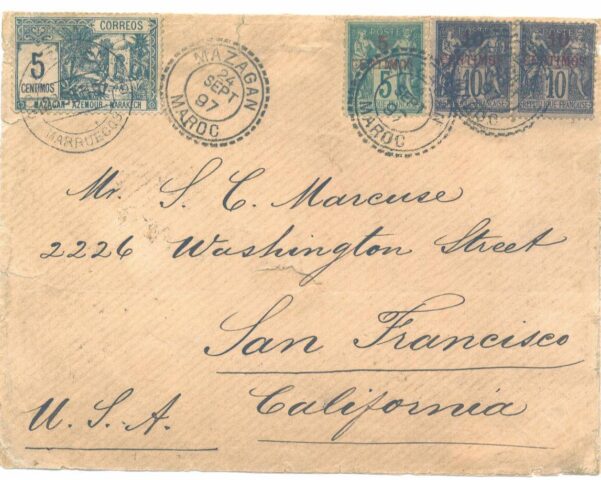 CORREOS
5
CENTIMOS
MAZAGAN-AZEMOUR-MARAKECH
MARRUECOS
MAZAGAN
24
SEPT
97
MAROC
POSTES
5
CENTIMOS
5
MAROC
97
10
CENTIMOS
10
REPUBLIQUE FRANÇAISE
10
CENTIMOS
10
REPUBLIQUE FRANÇAISE
Mr. S. C. Marcuse
2226 Washington Street
San Francisco
U.S.A. California